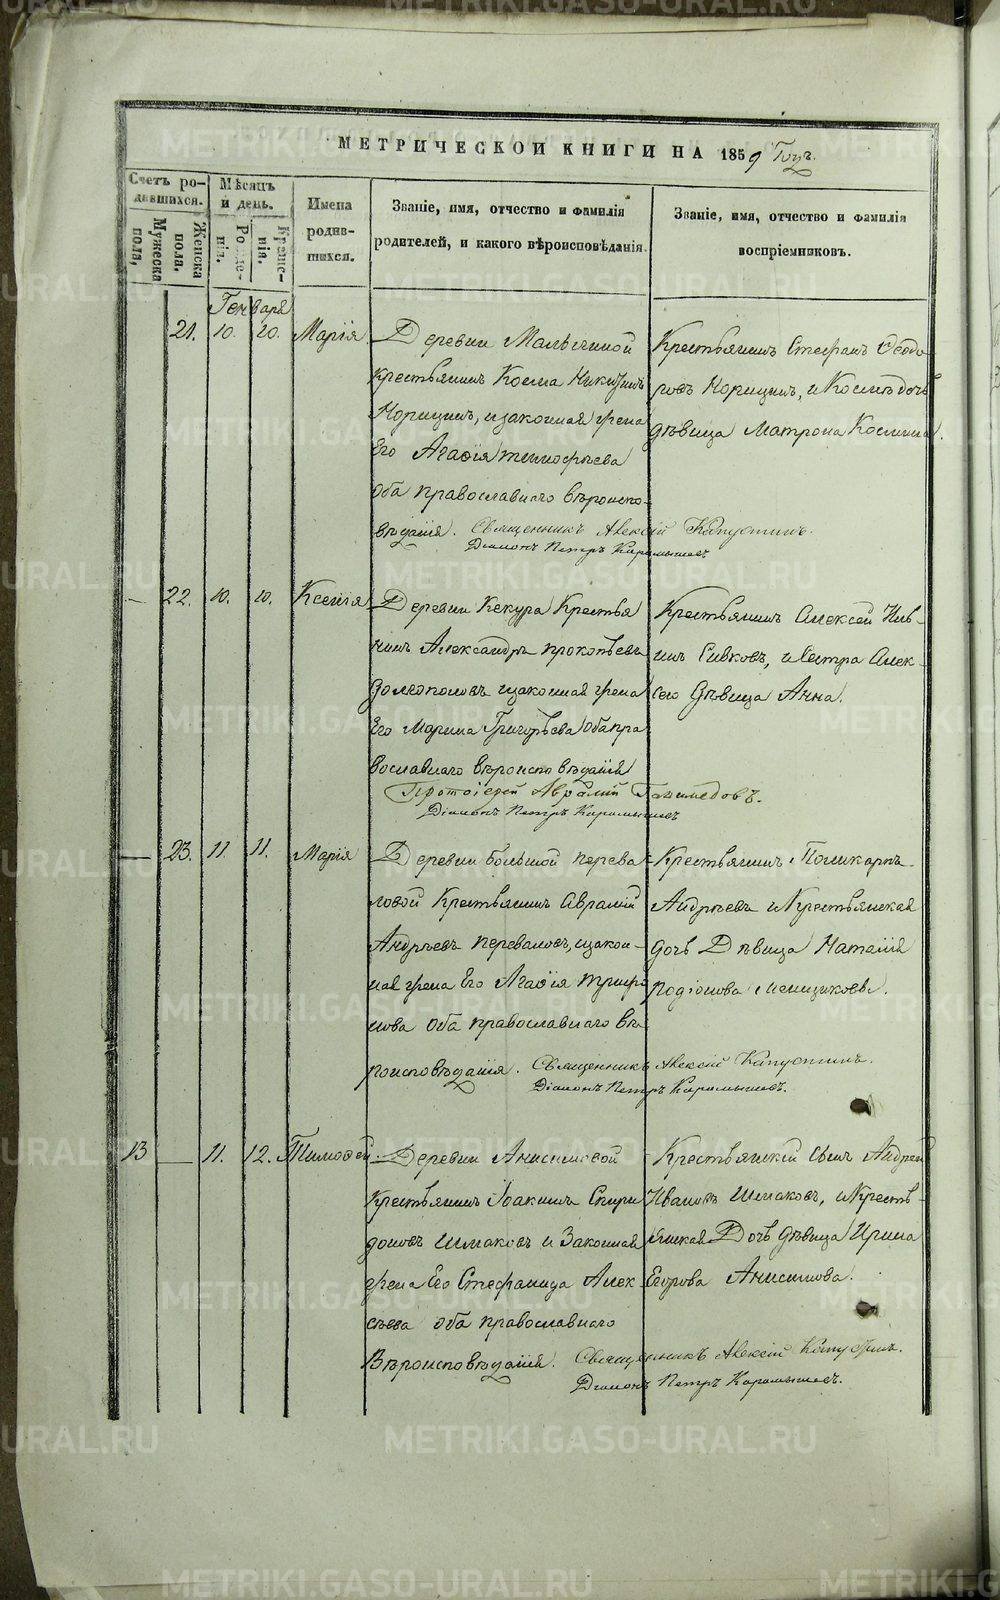 МЕТРИЧЕСКОЙ КНИГИ НА 1859 Годъ.
Счетъ родившихся.
Мужеска пола,
Женска пола.
Мѣсяцъ и день.
Рожденія.
Крещенія.
Имена родившихся.
Званіе, имя, отчество и фамилія родителей, и какого вѣроисповѣданія.
Званіе, имя, отчество и фамилія воспріемниковъ.
Генваря
21. 10. 20. Марія.
Деревни Малыгиной
крестьянинъ Косма Никитинъ
Норицинъ, и законная жена
Его Агафія Тимофѣева
оба православнаго вѣроиспо-
вѣданія. Священникъ Алексій Капустинъ.
Діаконъ Петръ Карамышевъ.
Крестьянинъ Стефанъ Ѳеодо-
ровъ Норицинъ, и Космы дочь
дѣвица Матрона Космина.
22. 10. 10. Ксенія
Деревни Кекура Крестья
нинъ Александръ Прокопьевъ
Долгополовъ и законная жена
Его Марина Григорьева оба пра
вославнаго вѣроисповѣданія
Протоіерей Аврамій Ганимедовъ.
Діаконъ Петръ Карамышевъ
Крестьянинъ Алексей Иль-
инъ Сивковъ, и Сестра Алек-
сея Дѣвица Анна.
23. 11. 11. Марія
Деревни большой перева
ловой Крестьянинъ Аврамій
Андреевъ Переваловъ, и закон-
ная жена Его Агафія Трифо
нова оба православнаго вѣ-
роисповѣданія. Священникъ Алексій Капустинъ.
Діаконъ Петръ Карамышевъ.
Крестьянинъ Поликарпъ
Андреевъ и Крестьянская
дочь Дѣвица Наталія
Родіонова Менщикова.
13 11. 12. Тимофей.
Деревни Анисимовой
Крестьянинъ Іоакимъ Спири
доновъ Шмаковъ и Законная
жена Его Стефанида Алек
сѣева оба православнаго
Вѣроисповѣданія. Священникъ Алексій Капустинъ.
Діаконъ Петръ Карамышевъ.
Крестьянскій Сынъ Андрей
Ивановъ Шмаковъ, и Кресть-
янская Дочь дѣвица Ирина
Егорова Анисимова.
METRIKI.GASO-URAL.RU